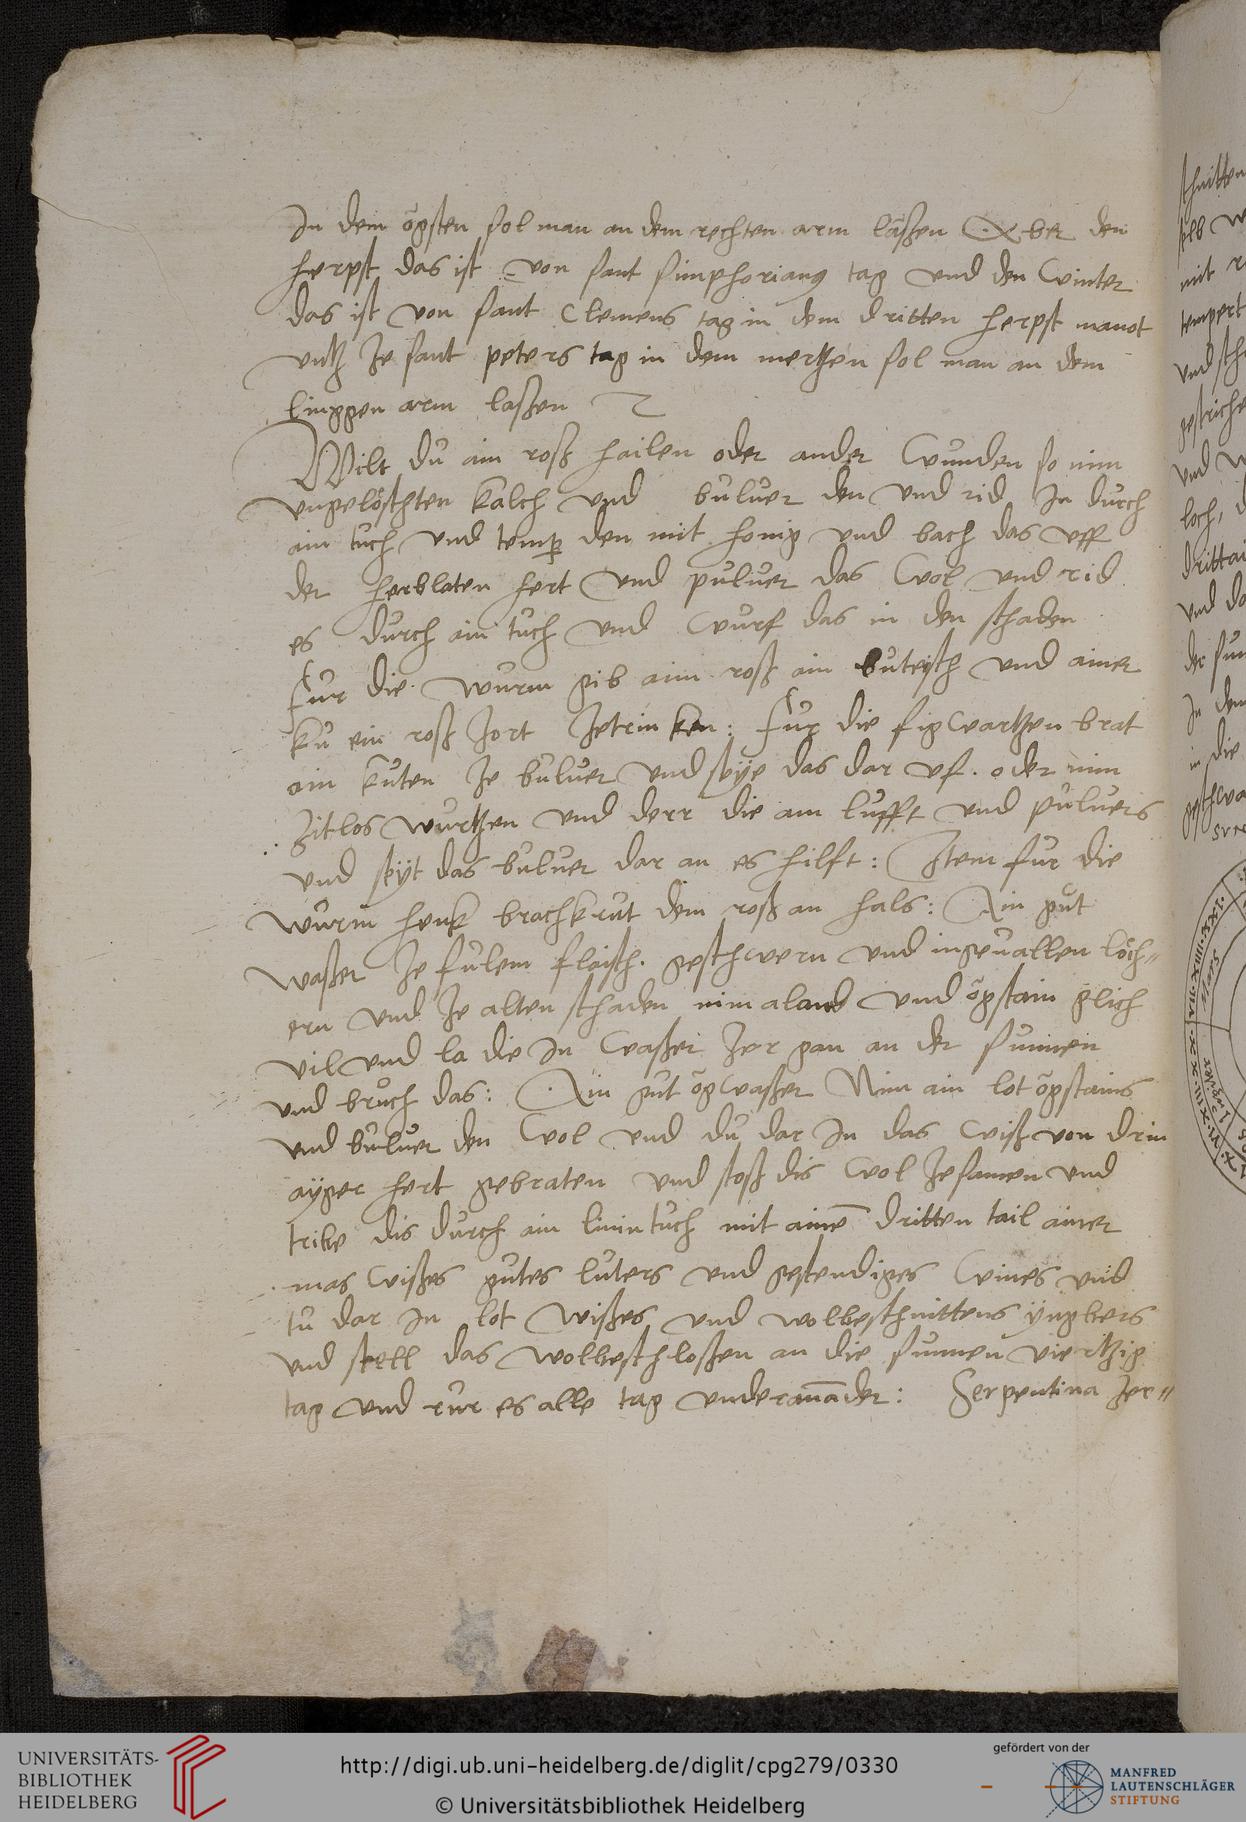 In dem ögsten sol man an dem rechten arm läßen Aber den
herpst das ist von sant simphorians tag und den winter
das ist von sant Clemens tag in dem dritten herpst manot
untz ze sant peters tag in dem mertzen sol man an dem
linggen arm laßen
Wilt du ain roß hailen oder ander wunden so nim
ungelöschten kalch und buluer den und rid In durch
ain tuch und temper den mit honig und bach das uff
der herblaten hert und puluer das wol und rid
es durch ain tuch und wurf das in den schaden
fur die wurm gib aim roß ain buteisch und ainer
ku ein roß zort zetrinken: fur die figwartzen brat
ain kuten ze buluer und seyie das dar uf. oder nim
Zitlos wurtzen und derr die am lufft und puluers
und seyt das buluer dar an es hilft: Item fur die
wurm henk brachkrut dem roß an hals: Ain gut
waßer ze fulem flaisch. geschwern und ingeuallen löch-
ern und ze alten schaden nim aland und ogstain glich
vil und la die In waßer zergan an der sunnen
und bruch das: Ain gut ogwaßer Nim ain lot ogstains
und buluer den wol und du dar In das wiß von drin
ayger hert gebraten und stoß dis wol zesamen und
tribe dis durch ain linin tuch mit ainē dritten tail ainer
mas wißes gutes luters und gestendiges wines und
tu dar In lot wißes und wolbeschnittens yngbers
und stell das wolbeschloßen an die sunnen viertzig
tag und rur es alle tag underanāder: Serpentina zer-
schnitten
selb
mit
tempert
und
gestriche
und
loch,
drittai
und
der
In dem
in die
UNIVERSITÄTS-
BIBLIOTHEK
HEIDELBERG
http://digi.ub.uni-heidelberg.de/diglit/cpg279/0330
© Universitätsbibliothek Heidelberg
gefördert von der
MANFRED
LAUTENSCHLÄGER
STIFTUNG